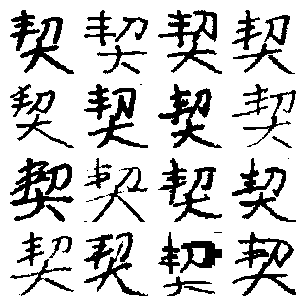 契契契契
契契契契
契契契契
契契契契